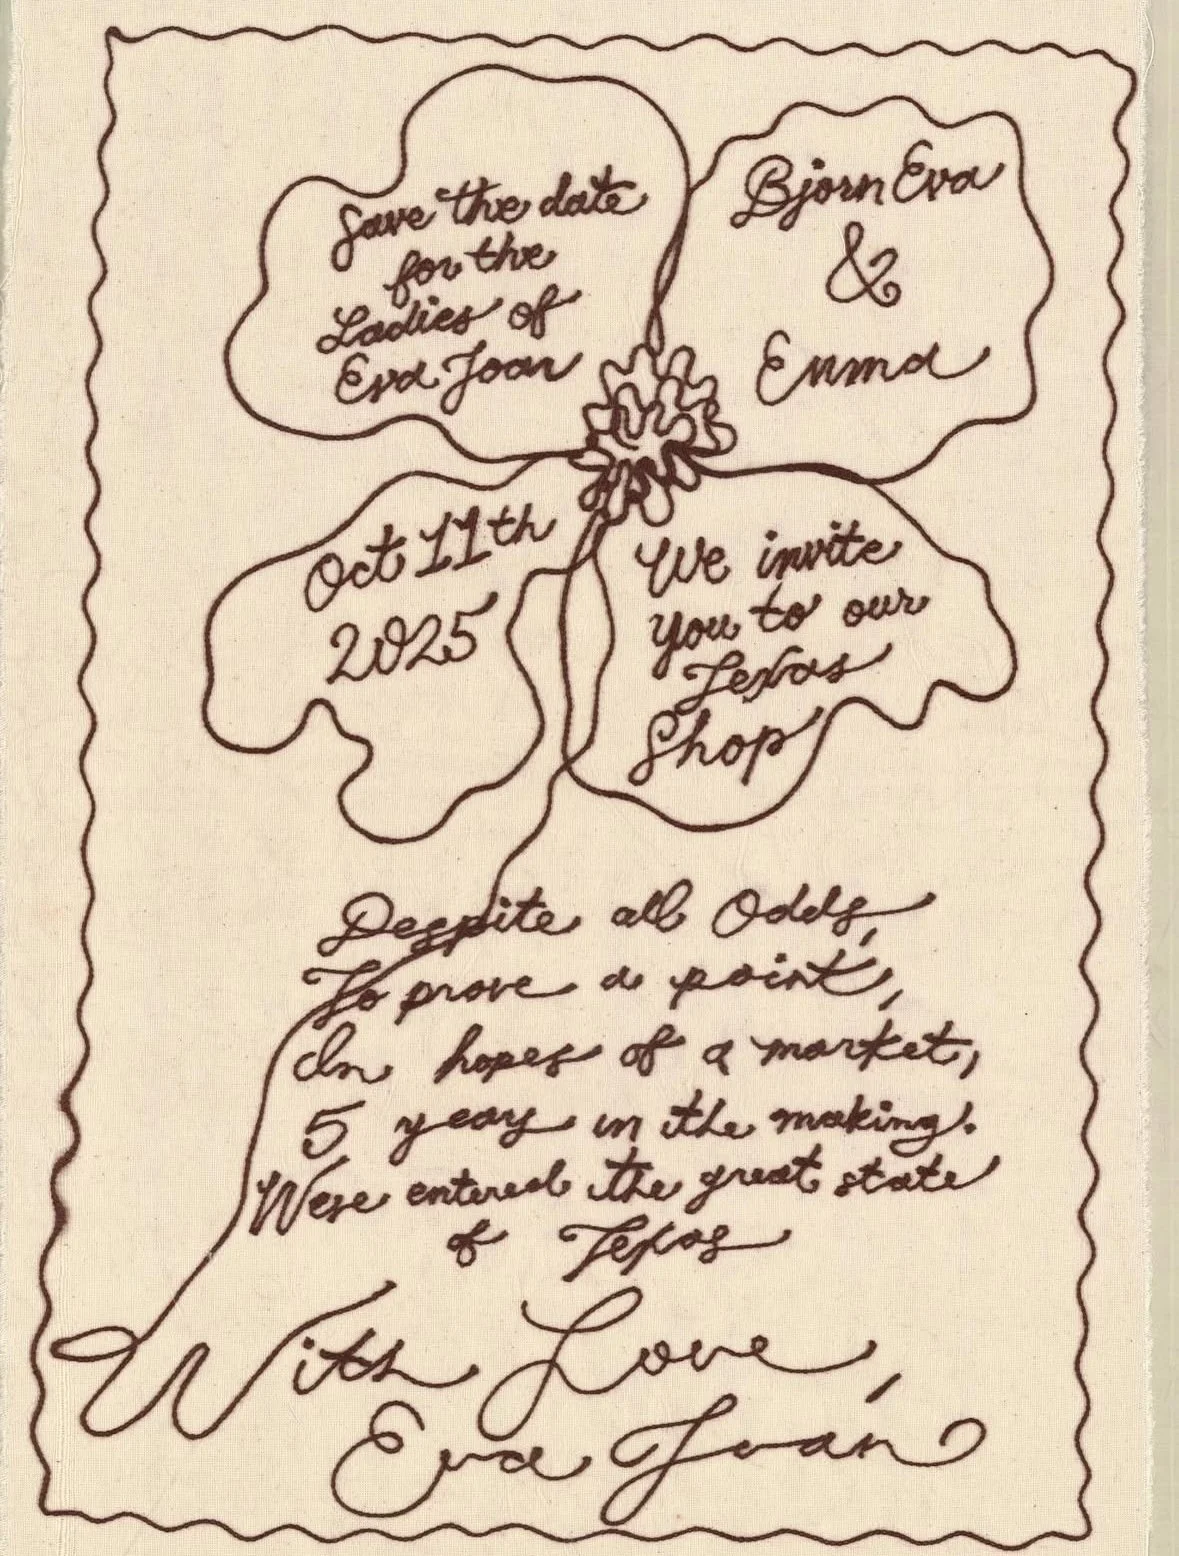 Save the date
for the
Ladies of
Eva Joan
Bjorn Eva
&
Emma
Oct 11th
2025
We invite
you to our
Texas
Shop
Despite all Odds,
To prove a point,
In hopes of a market,
5 years in the making.
Weve entered the great state
of Texas
With Love,
Eva Joan